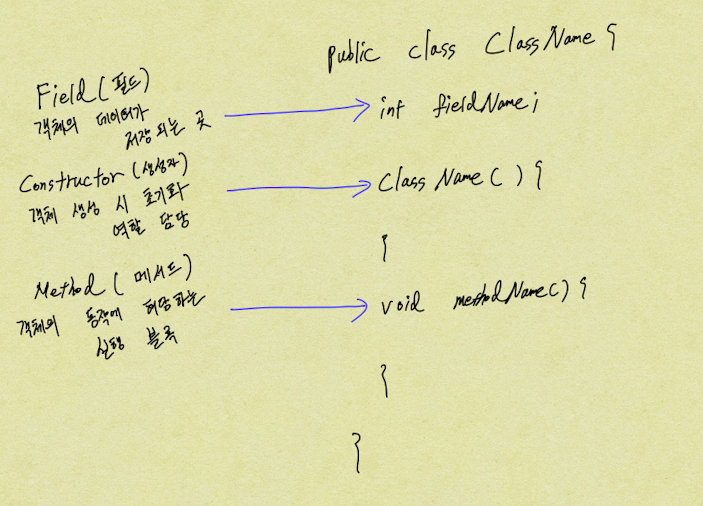 public class ClassName {
Field (필드)
객체의 데이터가
저장되는 곳
int fieldName;
Constructor (생성자)
객체 생성 시 초기화
역할 담당
ClassName() {
}
Method (메서드)
객체의 동작에 해당하는
실행 블록
void methodName() {
}
}